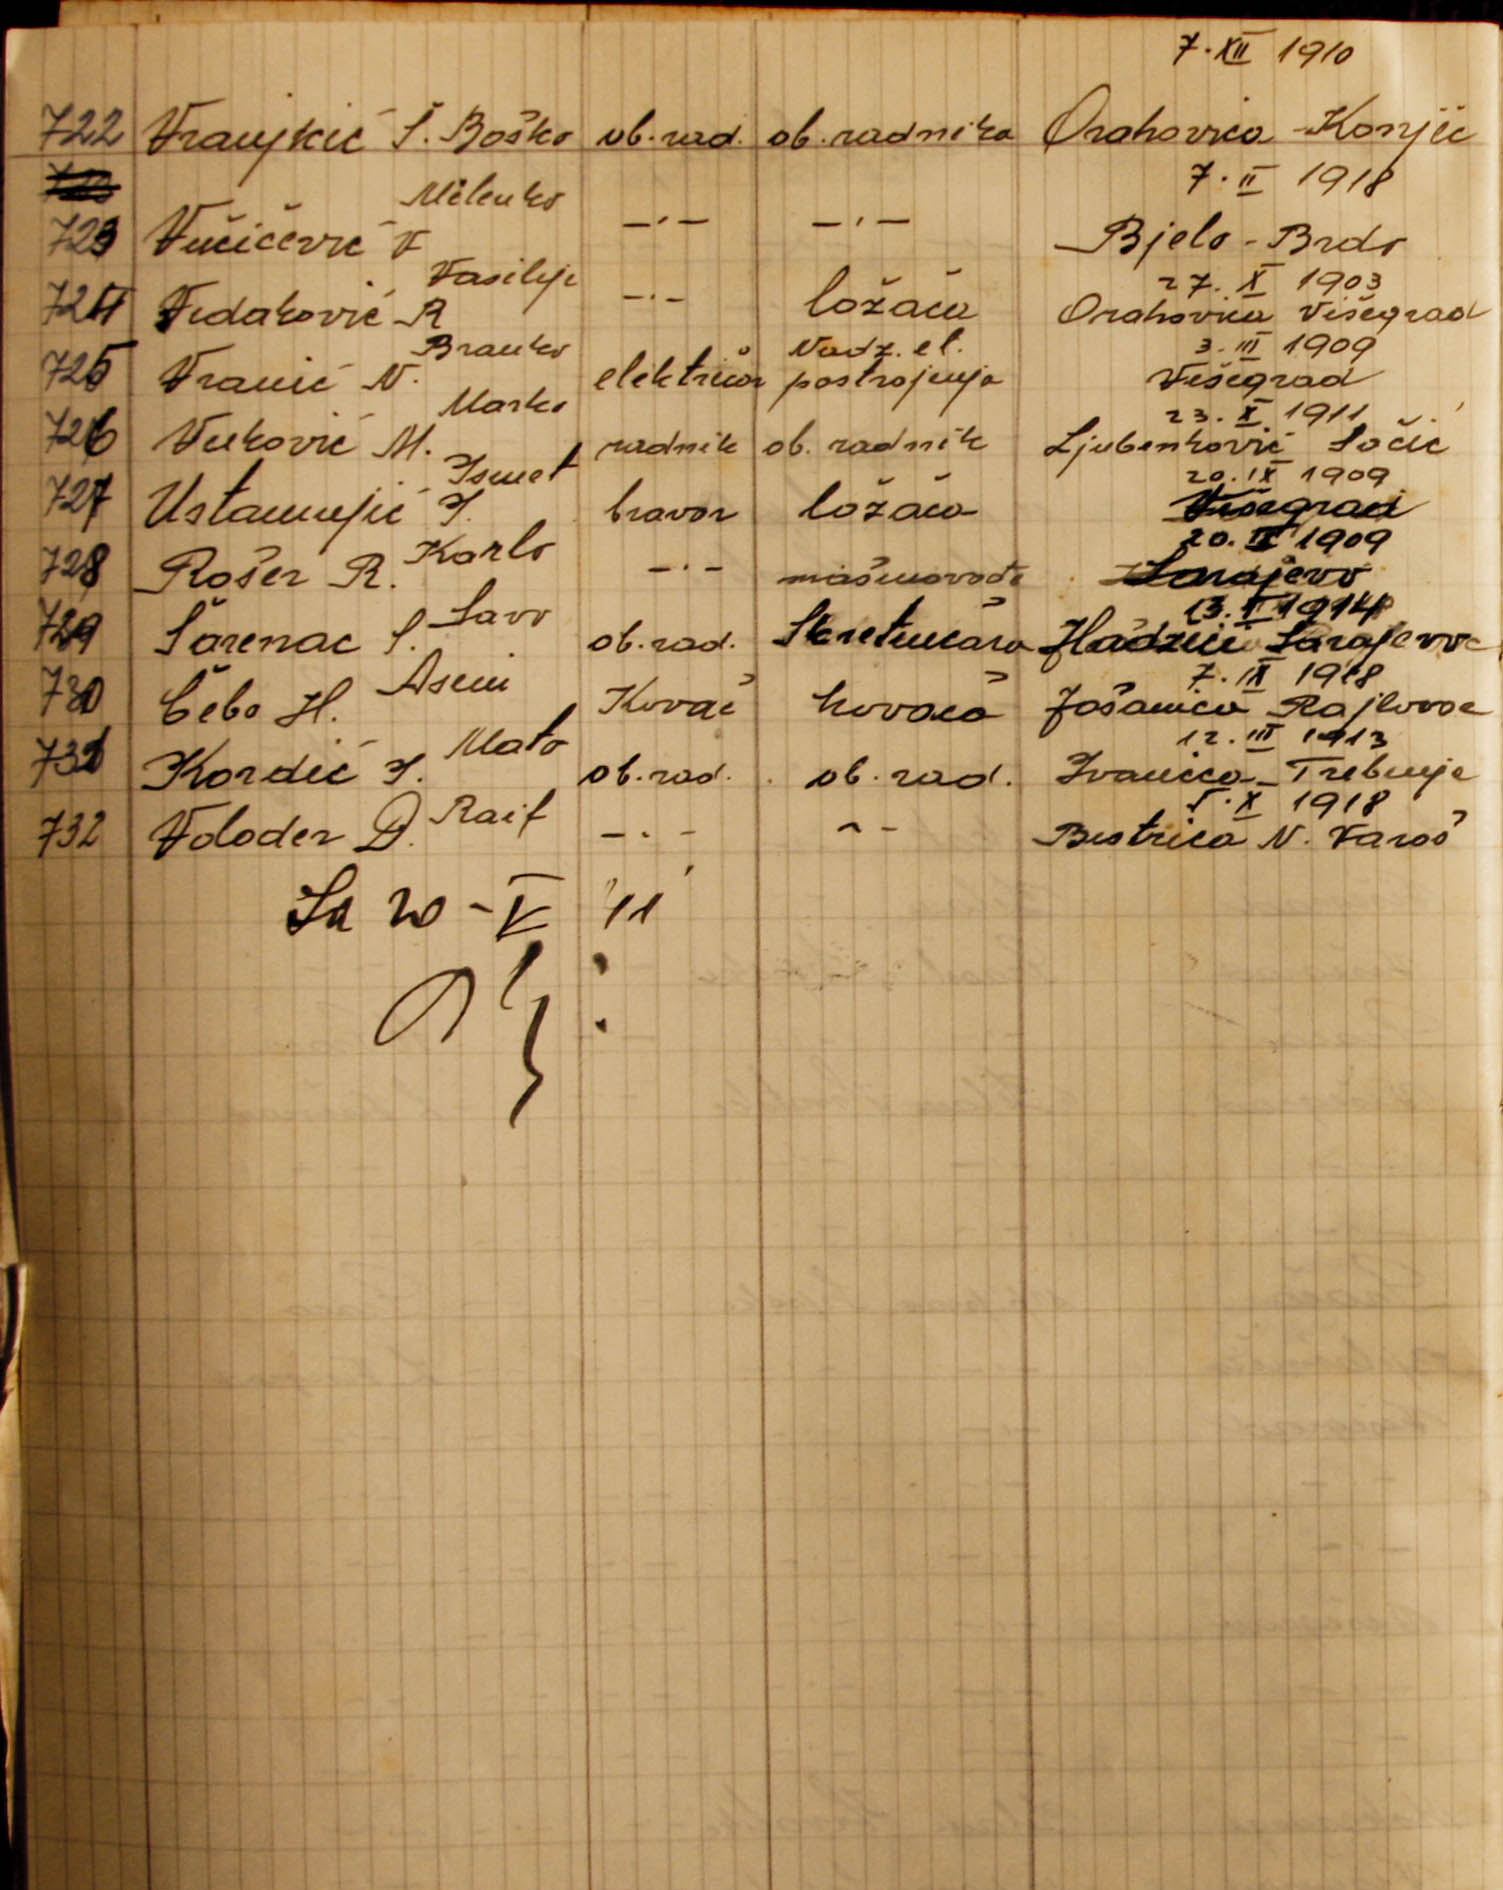 7. XII 1910
722 Vranjkić Š. Boško ob. rad. ob. radnika Orahovica - Konjic
Milenko 7. II 1918
723 Vučićević V —·— —·— Bjelo - Brdo
Vasilije 27. X 1903
724 Vidaković R —·— ložača Orahovica Višegrad
Branko Nadz. el. 3. III 1909
725 Vranić N. električar postrojenja Višegrad
Marko 23. X 1911
726 Vuković M. radnik ob. radnik Ljubenković
Ismet 20. IX 1909
727 Ustamujić I. bravar ložača Višegrad
Karlo 20. 1909
728 Rošer R. —·— mašinovođe Sarajevo
Savo 13. 1914
729 Šarenac S. ob. rad. Skretničara Hadžići Sarajevo
Asim 7. IX 1918
730 Čebo H. Kovač kovača Jošanica Rajlovac
Mato 12. III 1913
731 Kordić I. ob. rad. ob. rad. Ivanica - Trebinje
Raif 5. X 1918
732 Voloder D. —·— Bistrica N. Varoš
Sa 20 - V